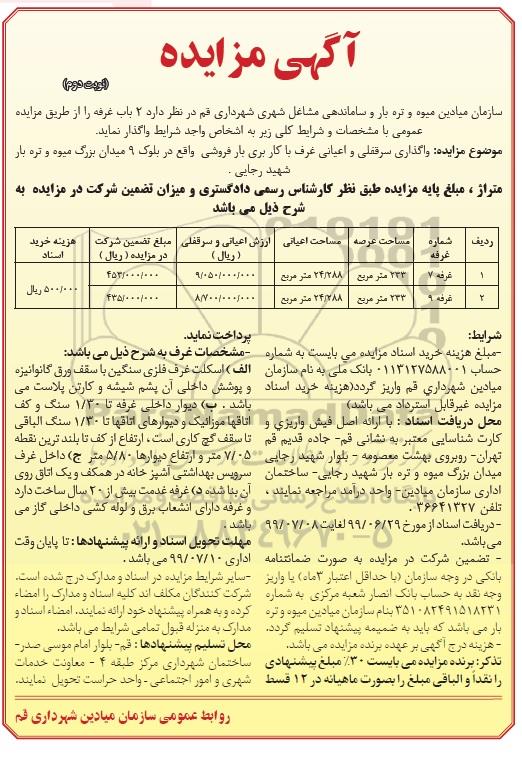 آگهی مزایده
(نوبت دوم)
سازمان میادین میوه و تره بار و ساماندهی مشاغل شهری شهرداری قم در نظر دارد ۲ باب غرفه را از طریق مزایده
عمومی با مشخصات و شرایط کلی زیر به اشخاص واجد شرایط واگذار نماید.
موضوع مزایده: واگذاری سرقفلی و اعیانی غرف با کار بری بار فروشی واقع در بلوک ۹ میدان بزرگ میوه و تره بار
شهید رجایی .
متراژ ، مبلغ پایه مزایده طبق نظر کارشناس رسمی دادگستری و میزان تضمین شرکت در مزایده به
شرح ذیل می باشد
ردیف | شماره غرفه | مساحت عرصه | مساحت اعیانی | ارزش اعیانی و سرقفلی ( ریال ) | مبلغ تضمین شرکت در مزایده ( ریال ) | هزینه خرید اسناد
۱ | غرفه ۷ | ۲۳۳ متر مربع | ۲۴/۲۸۸ متر مربع | ۹/۰۵۰/۰۰۰/۰۰۰ | ۴۵۳/۰۰۰/۰۰۰ | ۵۰۰/۰۰۰ ریال
۲ | غرفه ۹ | ۲۳۳ متر مربع | ۲۴/۲۸۸ متر مربع | ۸/۷۰۰/۰۰۰/۰۰۰ | ۴۳۵/۰۰۰/۰۰۰
شرایط:
-مبلغ هزینه خرید اسناد مزایده می بایست به شماره
حساب ۰۱۱۳۱۲۷۵۸۸۰۰۱ بانک ملی به نام سازمان
میادین شهرداری قم واریز گردد(هزینه خرید اسناد
مزایده غیرقابل استرداد می باشد)
محل دریافت اسناد : با ارائه اصل فیش واریزی و
کارت شناسایی معتبر به نشانی قم- جاده قدیم قم
تهران- روبروی بهشت معصومه - بلوار شهید رجایی
میدان بزرگ میوه و تره بار شهید رجایی- ساختمان
اداری سازمان میادین- واحد درآمد مراجعه نمایند .
تلفن ۳۶۶۴۱۳۲۷ .
-دریافت اسناد از مورخ ۹۹/۰۶/۲۹ لغایت ۹۹/۰۷/۰۸
می باشد.
- تضمین شرکت در مزایده به صورت ضمانتنامه
بانکی در وجه سازمان (با حداقل اعتبار ۳ماه) یا واریز
وجه نقد به حساب بانک انصار شعبه مرکزی به شماره
۳۵۱۰۸۲۴۹۱۵۱۸۲۳۱ بنام سازمان میادین میوه و تره
بار می باشد که باید به ضمیمه پیشنهاد تسلیم گردد.
- هزینه درج آگهی بر عهده برنده مزایده می باشد.
تذکر: برنده مزایده می بایست ۳۰٪ مبلغ پیشنهادی
را نقداً و الباقی مبلغ را بصورت ماهیانه در ۱۲ قسط
پرداخت نماید.
-مشخصات غرف به شرح ذیل می باشد:
الف ) اسکلت غرف فلزی سنگین با سقف ورق گالوانیزه
و پوشش داخلی آن پشم شیشه و کارتن پلاست می
باشد . ب) دیوار داخلی غرفه تا ۱/۳۰ سنگ و کف
اتاقها موزائیک و دیوارهای اتاقها تا ۱/۳۰ سنگ الباقی
تا سقف گچ کاری است ، ارتفاع از کف تا بلند ترین نقطه
۷/۰۵ متر و ارتفاع دیوارها ۵/۸۰ متر ج) داخل غرف
سرویس بهداشتی آشپز خانه در همکف و یک اتاق روی
آن بنا شده د) غرفه قدمت بیش از ۲۰ سال ساخت دارد
و غرفه دارای انشعاب برق و لوله کشی داخلی گاز می
باشد .
مهلت تحویل اسناد و ارائه پیشنهادها : تا پایان وقت
اداری ۹۹/۰۷/۱۰ می باشد .
-سایر شرایط مزایده در اسناد و مدارک درج شده است.
شرکت کنندگان مکلف اند کلیه اسناد و مدارک را امضاء
کرده و به همراه پیشنهاد خود ارائه نمایند. امضاء اسناد و
مدارک به منزله قبول تمامی شرایط می باشد.
محل تسلیم پیشنهادها : قم- بلوار امام موسی صدر-
ساختمان شهرداری مرکز طبقه ۴ - معاونت خدمات
شهری و امور اجتماعی - واحد حراست تحویل نمایند.
روابط عمومی سازمان میادین شهرداری قم